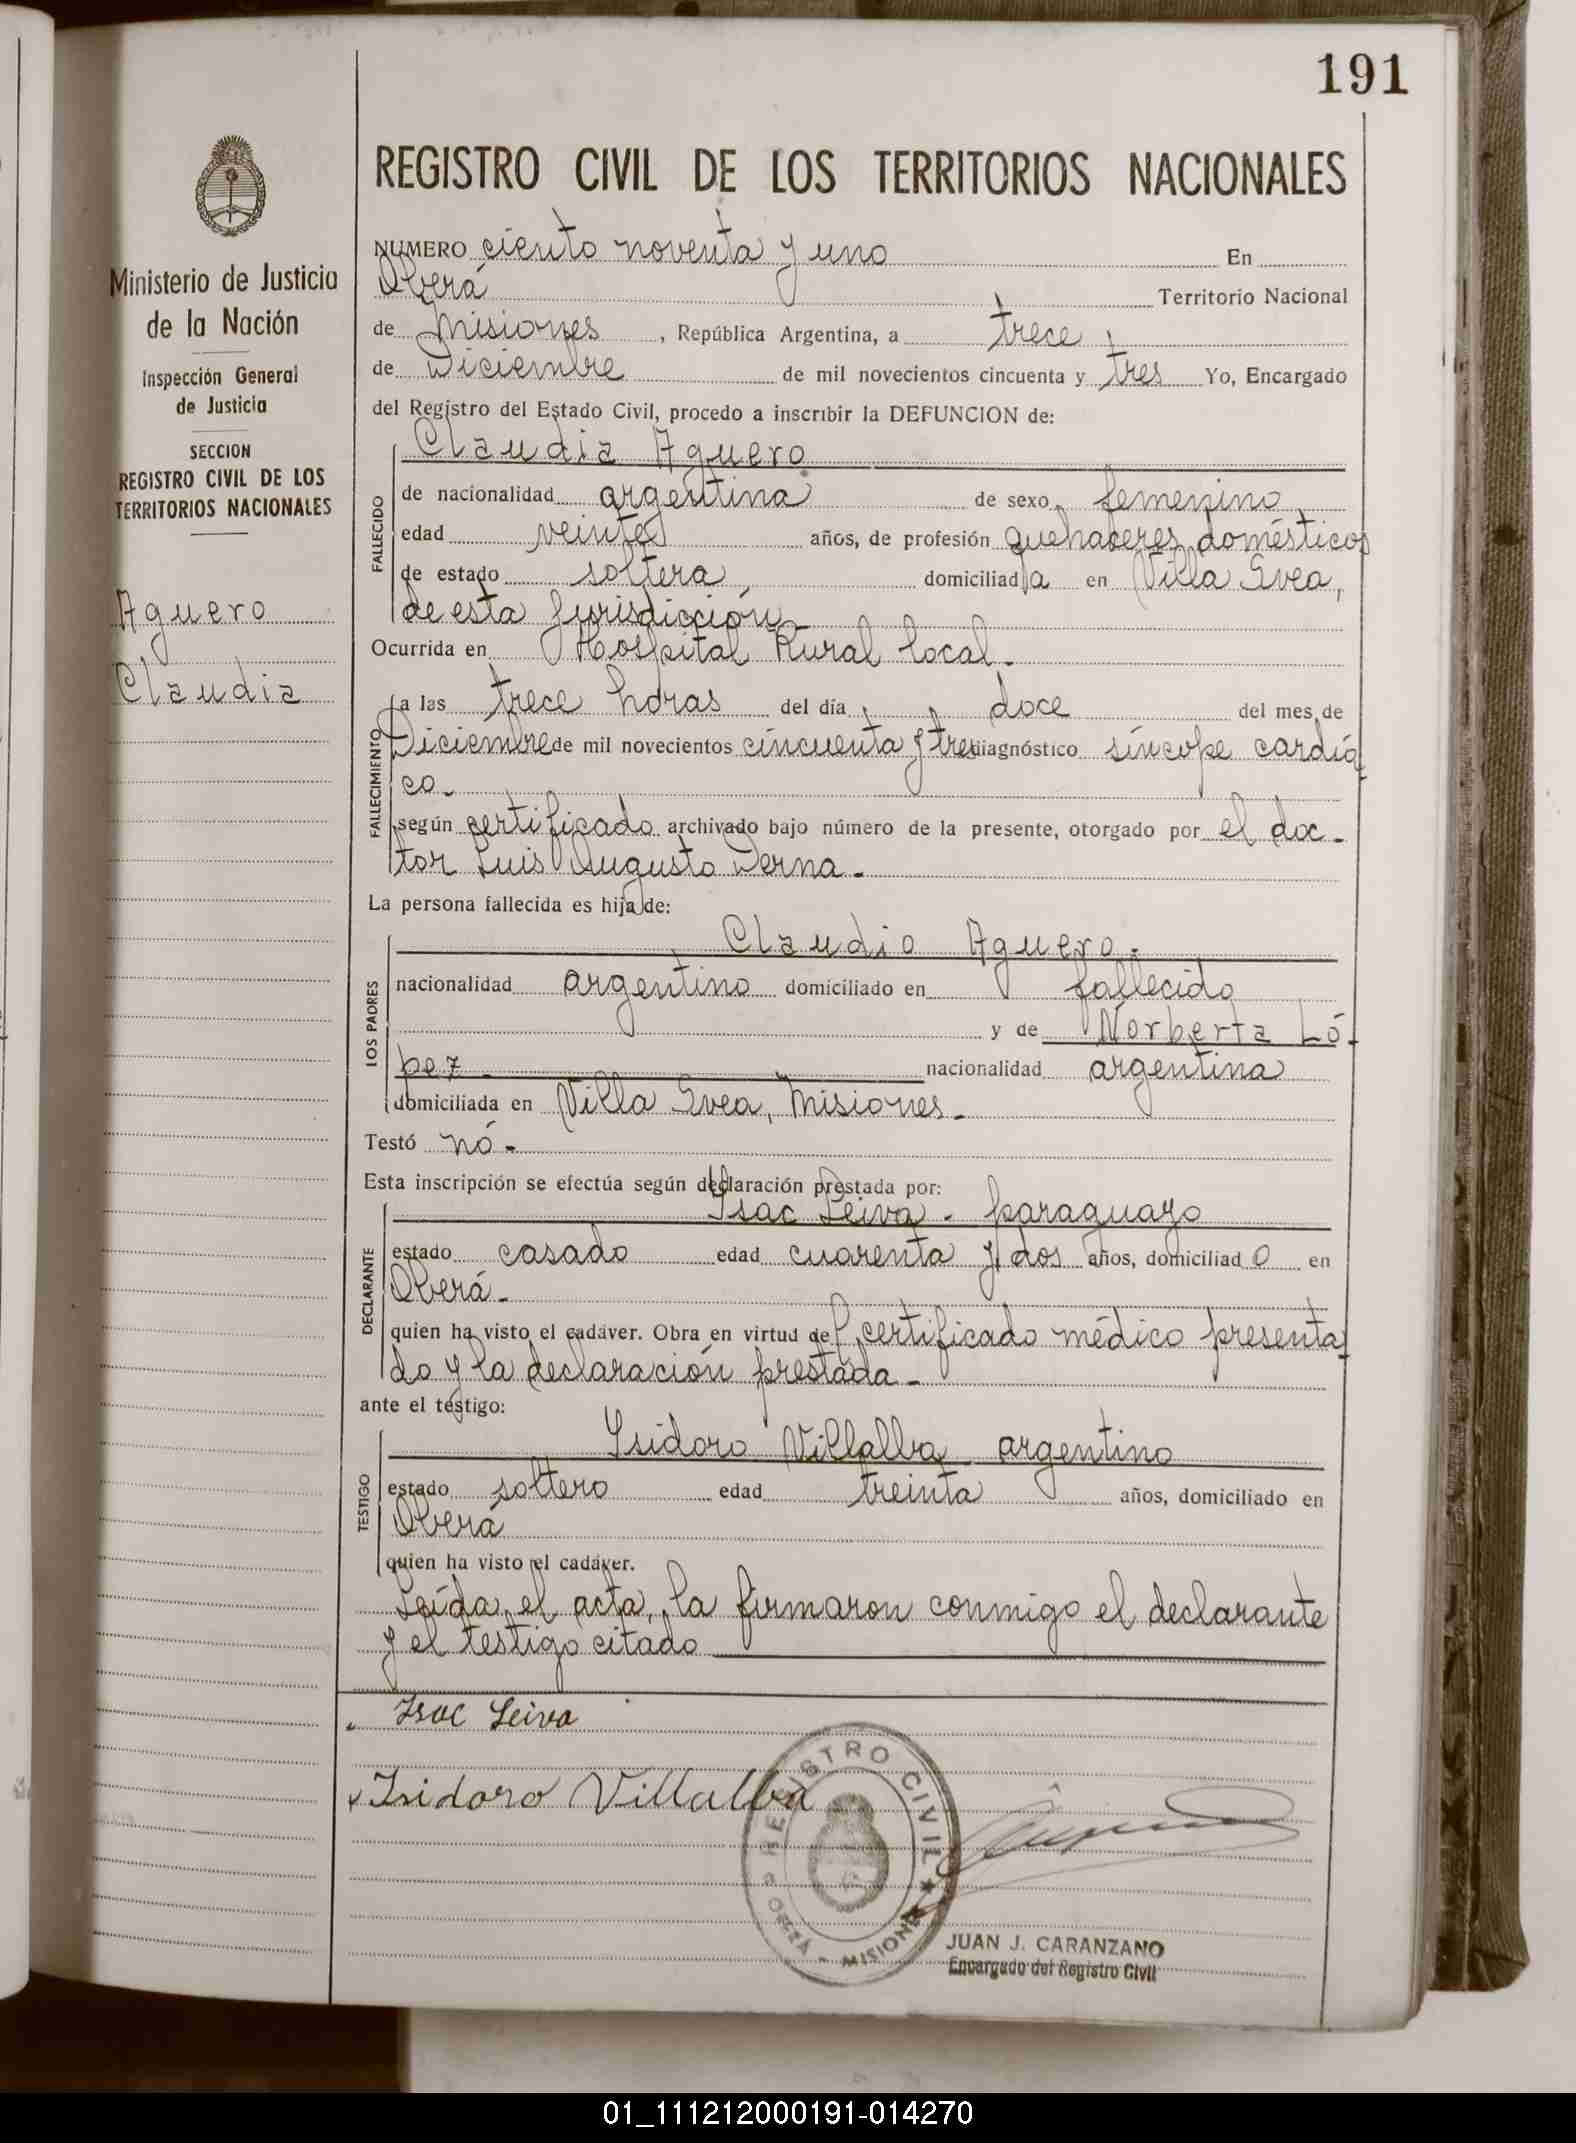 191
REGISTRO CIVIL DE LOS TERRITORIOS NACIONALES
Ministerio de Justicia
de la Nación
Inspección General
de Justicia
SECCION
REGISTRO CIVIL DE LOS
TERRITORIOS NACIONALES
Aguero
Claudia
NUMERO ciento noventa y uno En
Oberá Territorio Nacional
de Misiones, República Argentina, a trece
de Diciembre de mil novecientos cincuenta y tres Yo, Encargado
del Registro del Estado Civil, procedo a inscribir la DEFUNCION de:
FALLECIDO
Claudia Aguero
de nacionalidad argentina de sexo femenino
edad veinte años, de profesión quehaceres domésticos
de estado soltera domiciliada en Villa Svea,
de esta Jurisdicción
Ocurrida en Hospital Rural local.
FALLECIMIENTO
a las trece horas del día doce del mes de
Diciembre de mil novecientos cincuenta y tres diagnóstico síncope cardía
co.-
según certificado archivado bajo número de la presente, otorgado por el doc-
tor Luis Augusto Derna.-
La persona fallecida es hija de:
LOS PADRES
Claudio Aguero.
nacionalidad argentino domiciliado en fallecido
y de Norberta Ló-
pez nacionalidad argentina
domiciliada en Villa Svea, Misiones.-
Testó nó.-
Esta inscripción se efectúa según declaración prestada por:
DECLARANTE
Isac Leiva - paraguayo
estado casado edad cuarenta y dos años, domiciliado en
Oberá.-
quien ha visto el cadáver. Obra en virtud del certificado médico presenta
do y la declaración prestada.-
ante el testigo:
TESTIGO
Isidoro Villalba argentino
estado soltero edad treinta años, domiciliado en
Oberá
quien ha visto el cadáver.
Leída el acta, la firmaron conmigo el declarante
y el testigo citado
Isac Leiva
Isidoro Villalba
REGISTRO CIVIL
OBERÁ - MISIONES
JUAN J. CARANZANO
Encargado del Registro Civil
01_111212000191-014270